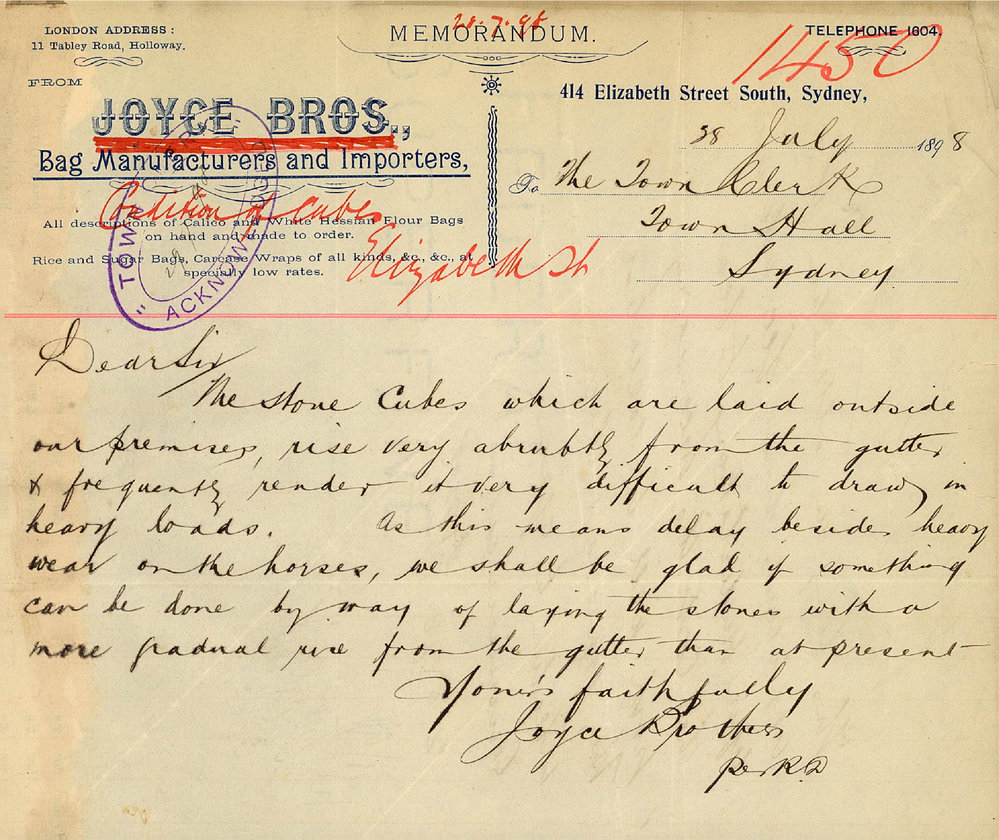 LONDON ADDRESS :
11 Tabley Road, Holloway.
MEMORANDUM.
TELEPHONE 1604.
1450
FROM
JOYCE BROS.,
Bag Manufacturers and Importers,
All descriptions of Calico and White Hessian Flour Bags
on hand and made to order.
Rice and Sugar Bags, Carcase Wraps of all kinds, &c., &c., at
specially low rates.
Condition of Cubes
Elizabeth St
"TOWN
ACKNEWLEDGED
414 Elizabeth Street South, Sydney,
28 July 1898
To The Town Clerk
Town Hall
Sydney.
Dear Sir
The stone Cubes which are laid outside
our premises, rise very abrubtly from the gutter
& frequently render it very difficult to draw in
heavy loads. As this means delay beside heavy
wear on the horses, we shall be glad if something
can be done by way of laying the stones with a
more gradual rise from the gutter than at present
Yours faithfully
Joyce Brothers